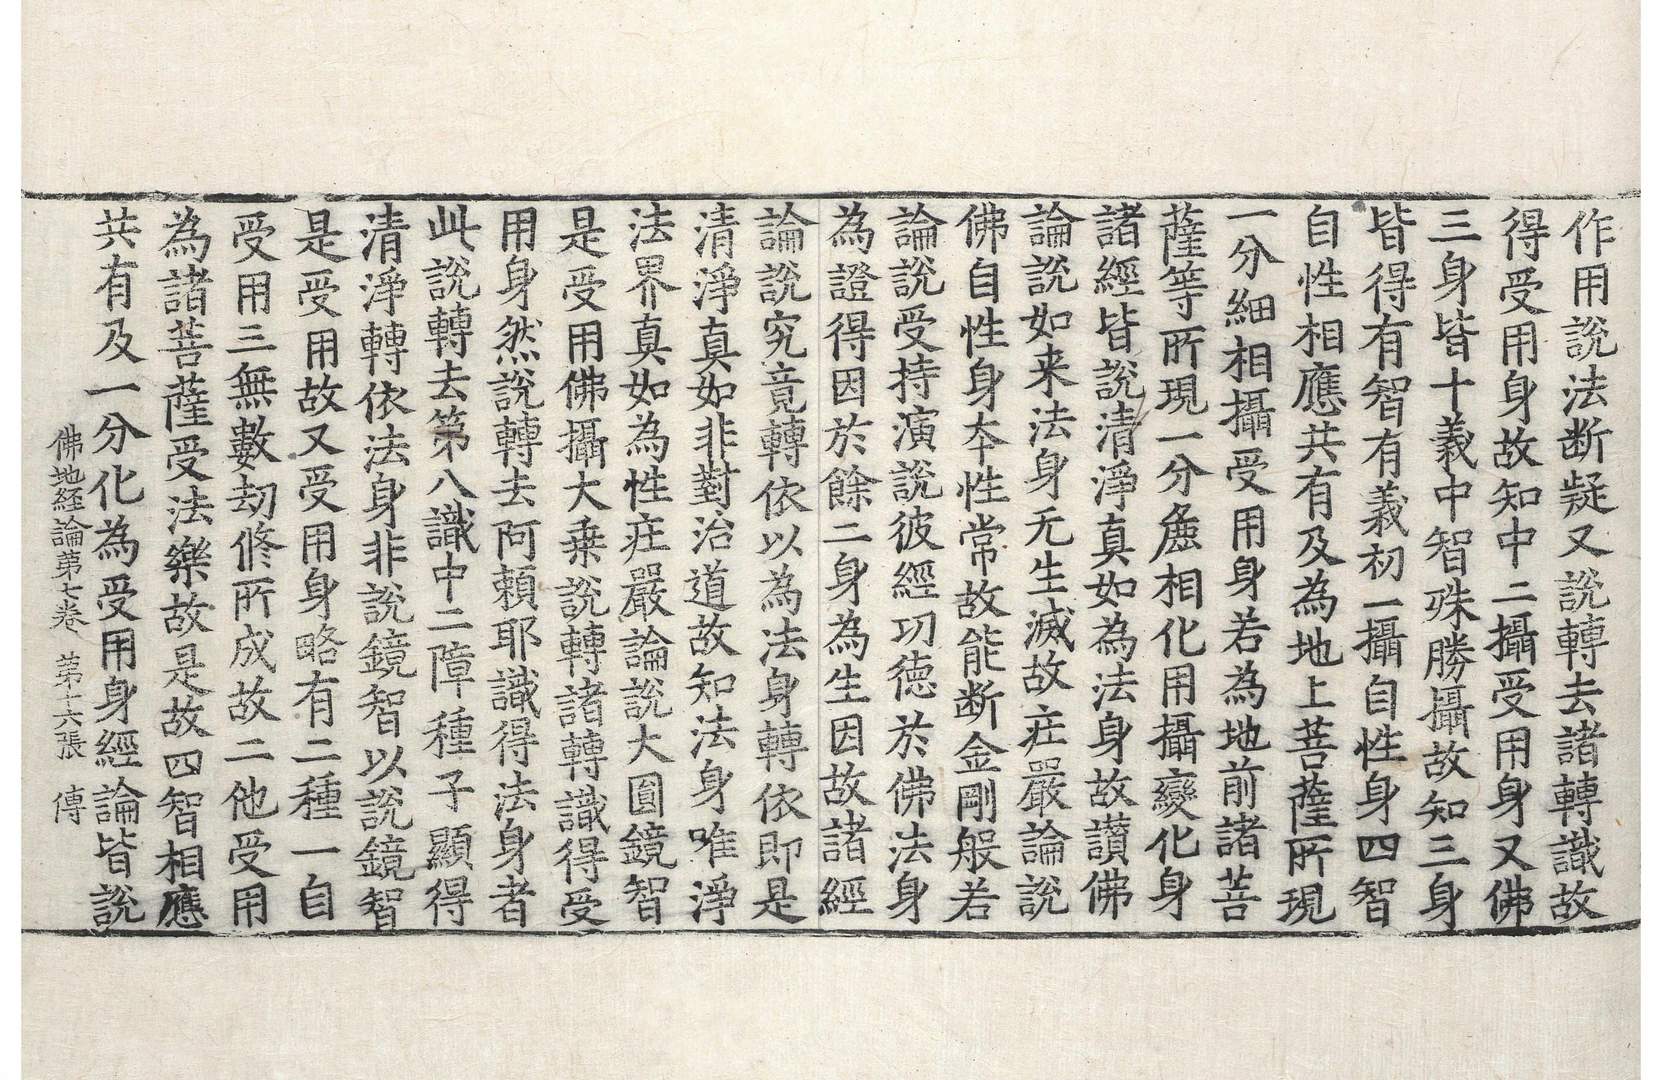 作用說法断疑又說轉去諸轉識故
得受用身故知中二攝受用身又佛
三身皆十義中智殊勝攝故知三身
皆得有智有義初一攝自性身四智
自性相應共有及為地上菩薩所現
一分細相攝受用身若為地前諸菩
薩等所現一分麁相化用攝變化身
諸經皆說清淨真如為法身故讚佛
論說如来法身无生滅故庄嚴論說
佛自性身夲性常故能断金剛般若
論說受持演說彼經功徳於佛法身
為證得因於餘二身為生因故諸經
論說究竟轉依以為法身轉依即是
清淨真如非對治道故知法身唯淨
法界真如為性庄嚴論說大圎鏡智
是受用佛攝大乗說轉諸轉識得受
用身然說轉去阿頼耶識得法身者
此說轉去第八識中二障種子顯得
清淨轉依法身非說鏡智以說鏡智
是受用故又受用身略有二種一自
受用三無數劫修所成故二他受用
為諸菩薩受法樂故是故四智相應
共有及一分化為受用身經論皆說
佛地經論第七卷　第十六張　傳